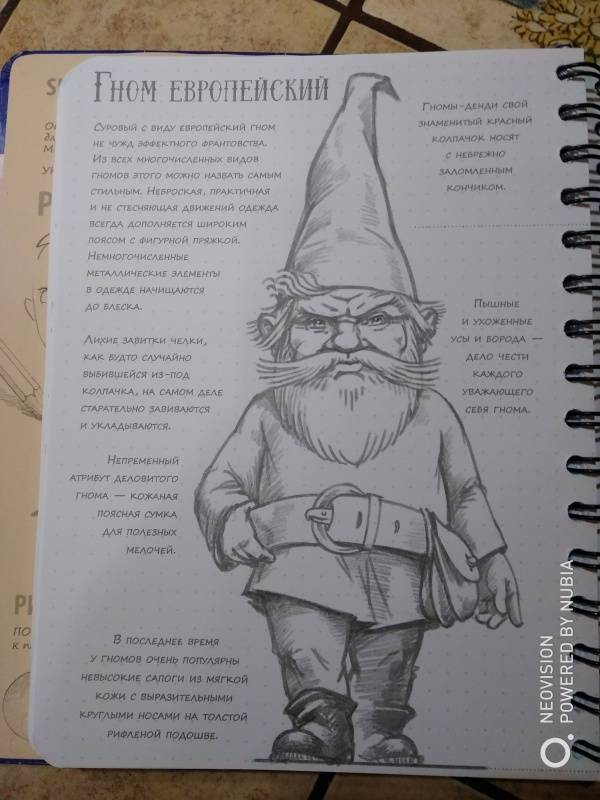 Гном европейский
Суровый с виду европейский гном
не чужд эффектного франтовства.
Из всех многочисленных видов
гномов этого можно назвать самым
стильным. Неброская, практичная
и не стесняющая движений одежда
всегда дополняется широким
поясом с фигурной пряжкой.
Немногочисленные
металлические элементы
в одежде начищаются
до блеска.
Лихие завитки челки,
как будто случайно
выбившейся из-под
колпачка, на самом деле
старательно завиваются
и укладываются.
Непременный
атрибут деловитого
гнома — кожаная
поясная сумка
для полезных
мелочей.
В последнее время
у гномов очень популярны
невысокие сапоги из мягкой
кожи с выразительными
круглыми носами на толстой
рифленой подошве.
Гномы-денди свой
знаменитый красный
колпачок носят
с небрежно
заломленным
кончиком.
Пышные
и ухоженные
усы и борода —
дело чести
каждого
уважающего
себя гнома.
NEOVISION
POWERED BY NUBIA